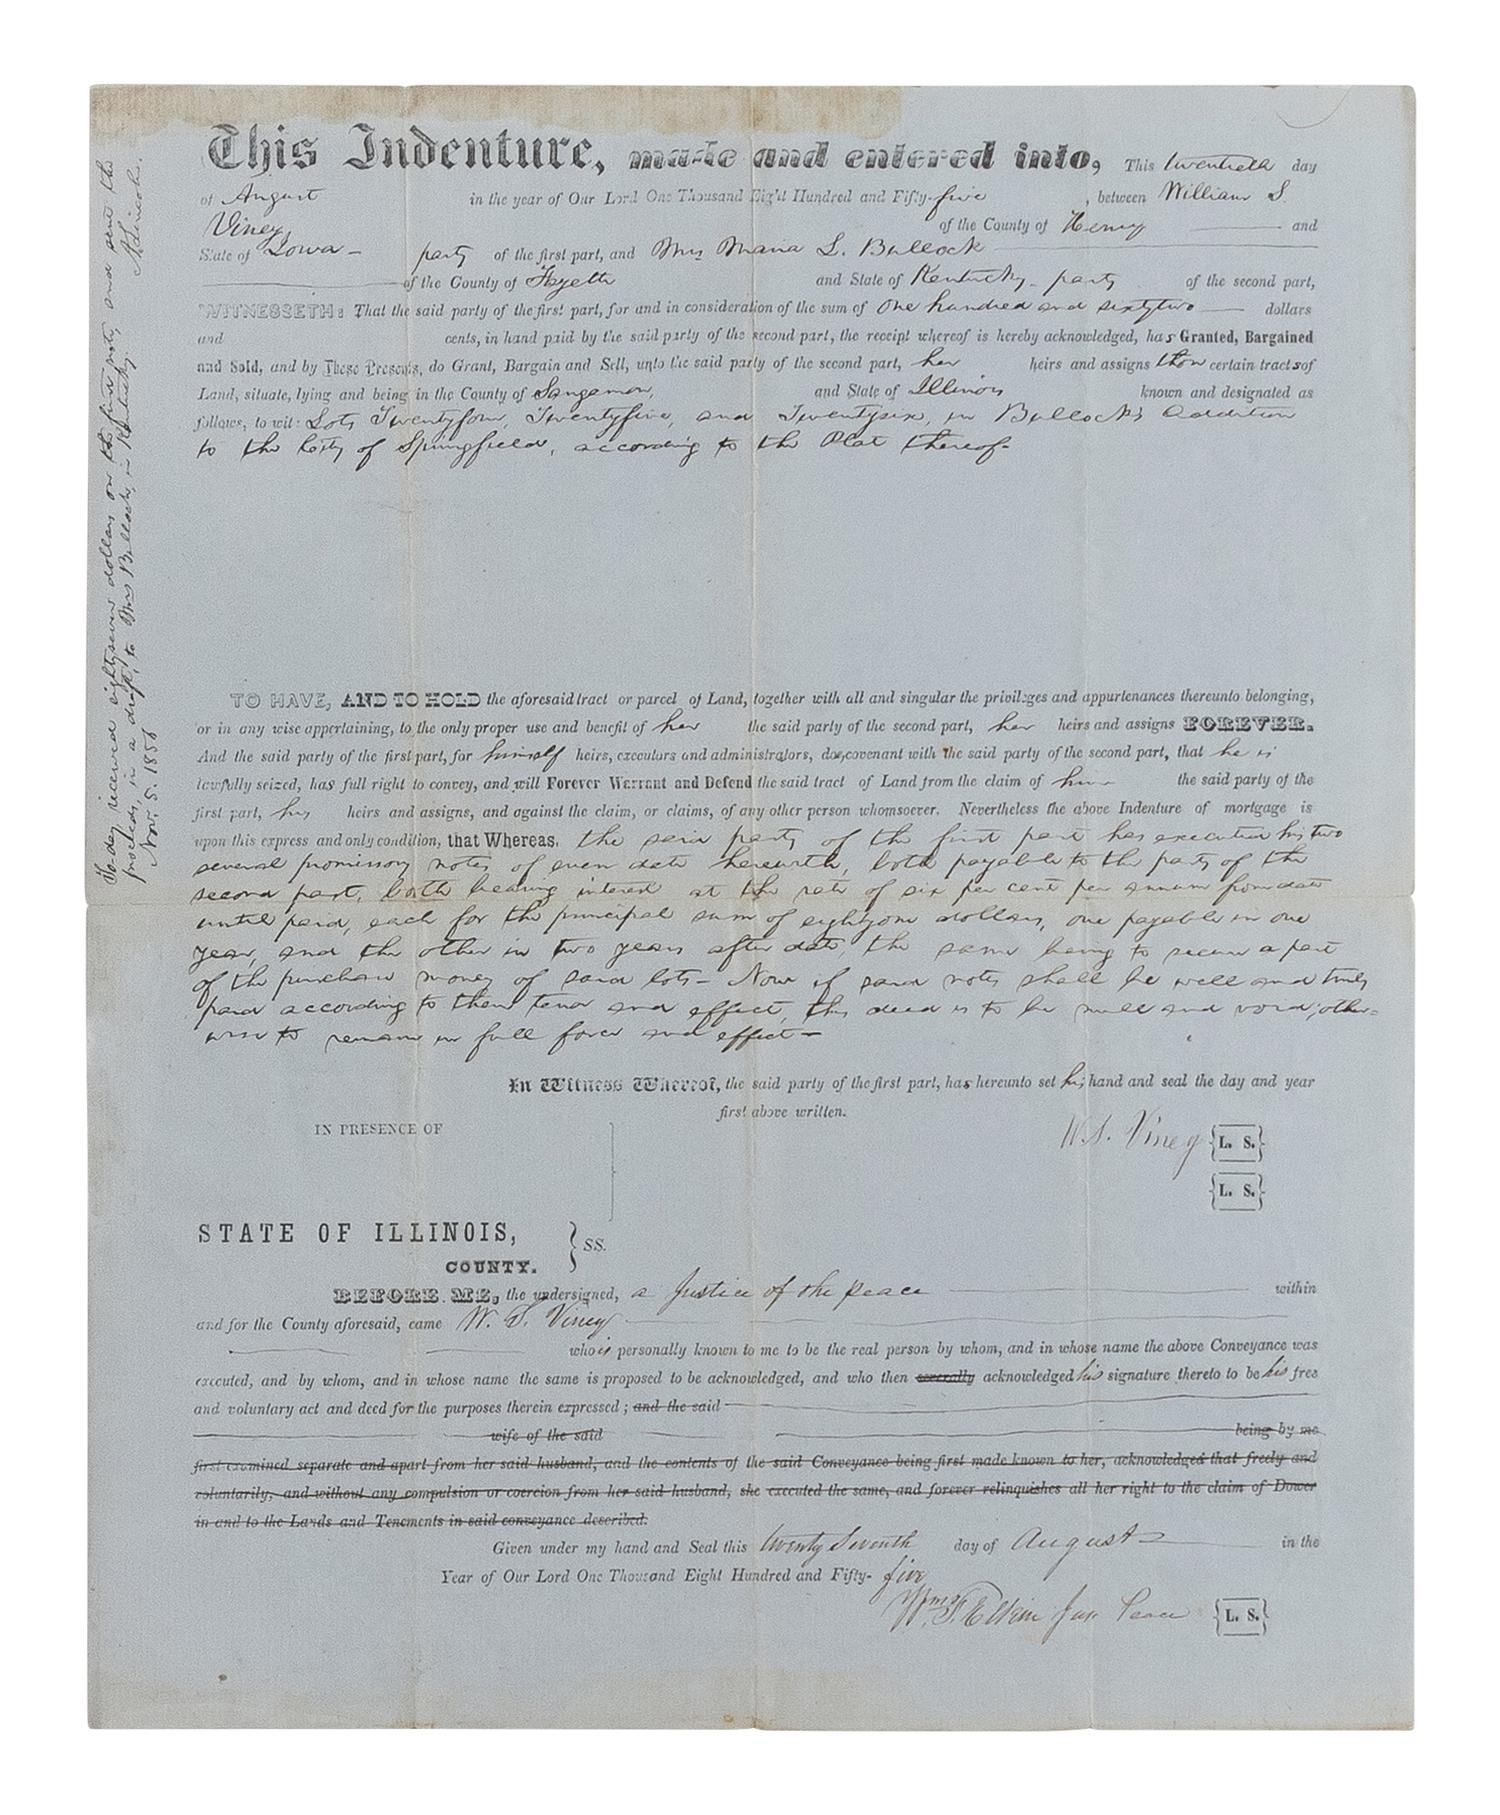 This Indenture, made and entered into, This twentieth day
of August in the year of Our Lord One Thousand Eight Hundred and Fifty-five, between William S.
Viney, of the County of Henry and
State of Iowa - party of the first part, and Mrs Maria L. Bullock
of the County of Fayette and State of Kentucky - party of the second part,
WITNESSETH: That the said party of the first part, for and in consideration of the sum of One hundred and sixtytwo dollars
and cents, in hand paid by the said party of the second part, the receipt whereof is hereby acknowledged, has Granted, Bargained
and Sold, and by These Presents, do Grant, Bargain and Sell, unto the said party of the second part, her heirs and assigns certain tracts of
Land, situate, lying and being in the County of Sangamon, and State of Illinois known and designated as
follows, to wit: Lots Twentyfour, Twentyfive, and Twentysix, in Bullock's Addition
to the City of Springfield, according to the Plat thereof-
TO HAVE, AND TO HOLD the aforesaid tract or parcel of Land, together with all and singular the privileges and appurtenances thereunto belonging,
or in any wise appertaining, to the only proper use and benefit of her the said party of the second part, her heirs and assigns FOREVER.
And the said party of the first part, for himself heirs, executors and administrators, does covenant with the said party of the second part, that he is
lawfully seized, has full right to convey, and will Forever Warrant and Defend the said tract of Land from the claim of him the said party of the
first part, his heirs and assigns, and against the claim, or claims, of any other person whomsoever. Nevertheless the above Indenture of mortgage is
upon this express and only condition, that Whereas, the said party of the first part has executed his two
several promissory notes of even date herewith, both payable to the party of the
second part, both bearing interest at the rate of six per cent per annum from date
until paid, each for the principal sum of eightyone dollars, one payable in one
year, and the other in two years after date, the same being to secure a part
of the purchase money of said lots- Now if said notes shall be well and truly
paid according to their tenor and effect, this deed is to be null and void; other-
wise to remain in full force and effect-
In Witness Whereof, the said party of the first part, has hereunto set his hand and seal the day and year
first above written.
IN PRESENCE OF
W.S. Viney {L. S.}
{L. S.}
STATE OF ILLINOIS,
COUNTY. } SS.
BEFORE ME, the undersigned, a Justice of the peace within
and for the County aforesaid, came W. S. Viney
who is personally known to me to be the real person by whom, and in whose name the above Conveyance was
executed, and by whom, and in whose name the same is proposed to be acknowledged, and who then severally acknowledged his signature thereto to be his free
and voluntary act and deed for the purposes therein expressed; and the said
wife of the said being by me
first examined separate and apart from her said husband, and the contents of the said Conveyance being first made known to her, acknowledged that freely and
voluntarily, and without any compulsion or coercion from her said husband, she executed the same, and forever relinquishes all her right to the claim of Dower
in and to the Lands and Tenements in said conveyance described.
Given under my hand and Seal this twenty Seventh day of August in the
Year of Our Lord One Thousand Eight Hundred and Fifty- five
Wm. F. Elkin Jus Peace {L. S.}
To-day received eightyseven dollars on the first note, and sent the
proceeds, in a draft, to Mrs Bullock, in Kentucky.
Nov. 5. 1856 A. Lincoln.